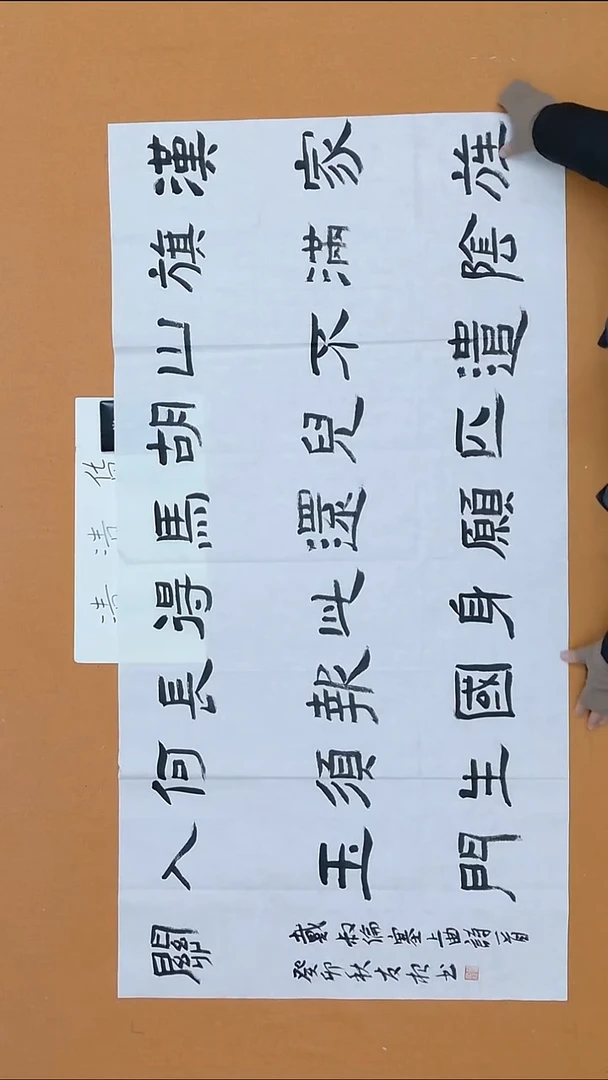 漢家旌
旗滿陰
山不遣
胡兒匹
馬還願
得此身
長報國
何須生
入玉門
關
戴叔倫塞上曲詩一首
癸卯秋友松书